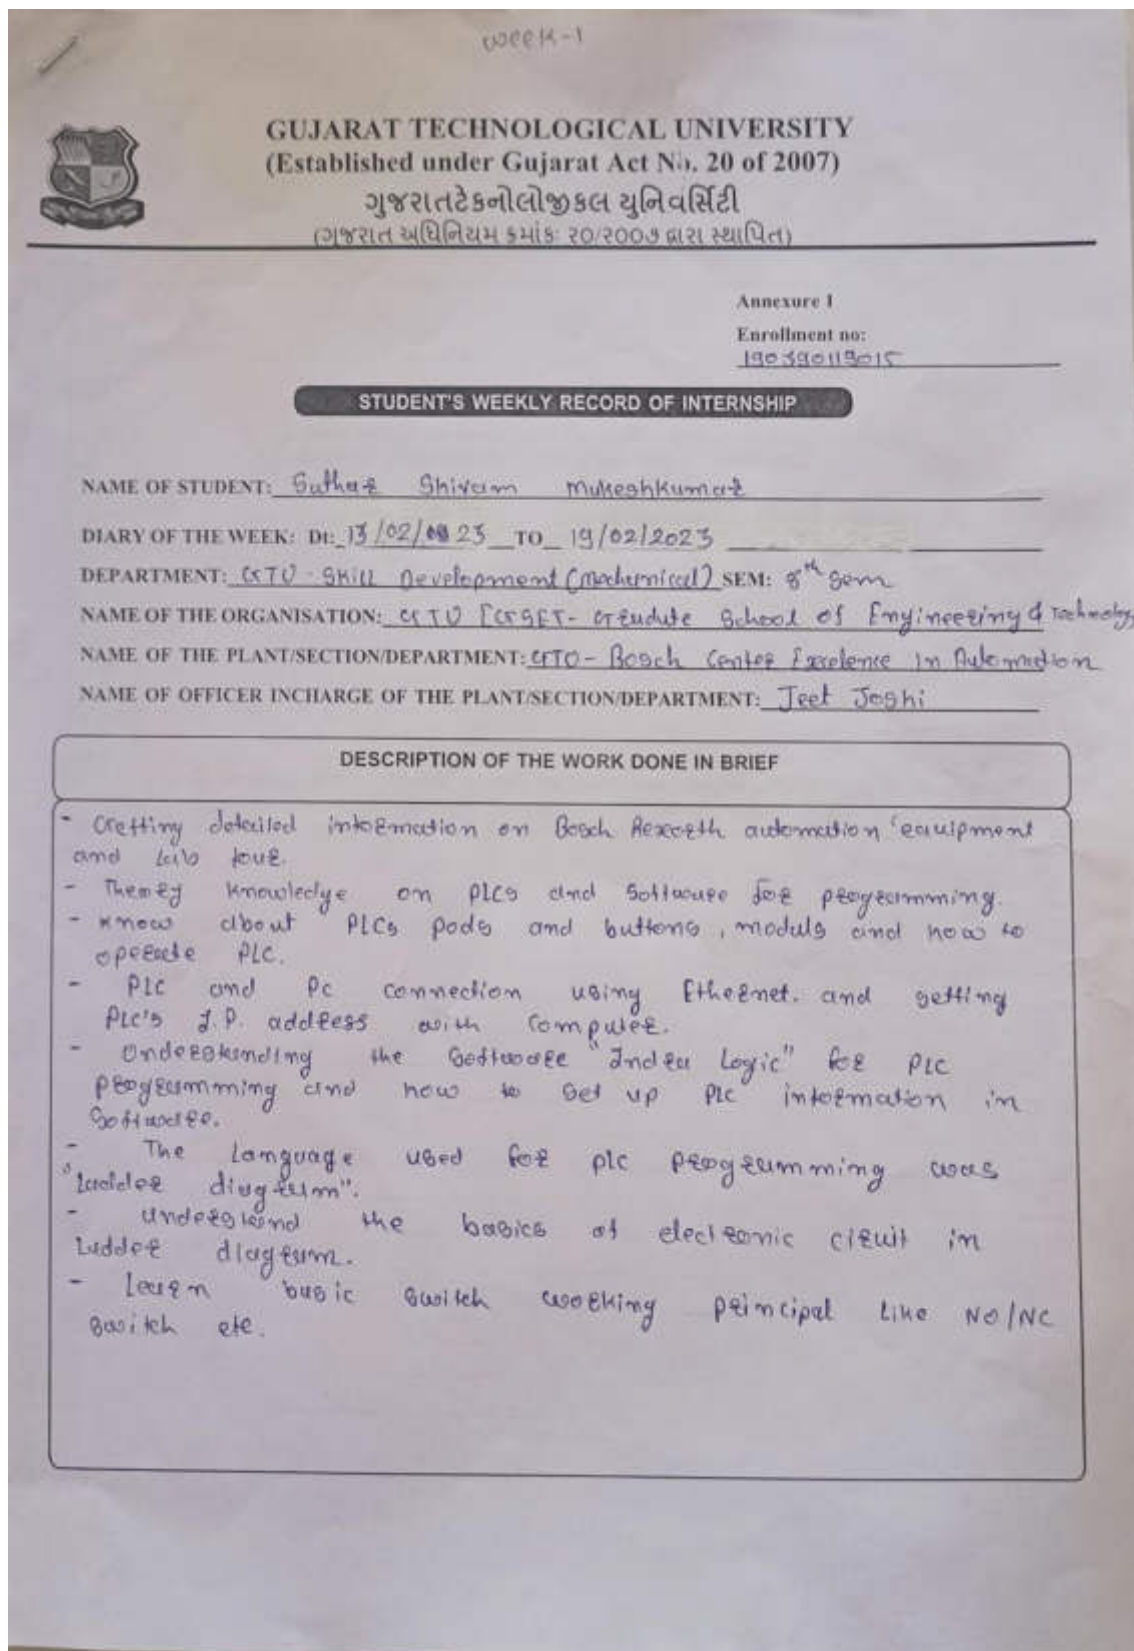 week-1
GUJARAT TECHNOLOGICAL UNIVERSITY
(Established under Gujarat Act No. 20 of 2007)
ગુજરાતટેકનોલોજીકલ યુનિવર્સિટી
(ગુજરાત અધિનિયમ ક્રમાંક: ૨૦/૨૦૦૭ દ્વારા સ્થાપિત)
Annexure I
Enrollment no:
190390119015
STUDENT'S WEEKLY RECORD OF INTERNSHIP
NAME OF STUDENT: Suthar Shivam Mukeshkumar
DIARY OF THE WEEK: Dt: 13/02/ 23 TO 19/02/2023
DEPARTMENT: GTU - Skill Development (Mechanical) SEM: 8th Sem
NAME OF THE ORGANISATION: GTU [GSET- Graudute School of Engyineering & Technology
NAME OF THE PLANT/SECTION/DEPARTMENT: GTU - Bosch Center Excelence in Automation
NAME OF OFFICER INCHARGE OF THE PLANT/SECTION/DEPARTMENT: Jeet Joshi
DESCRIPTION OF THE WORK DONE IN BRIEF
- Getting detailed information on Bosch Rexorth automation equipment
and lab tour.
- Theory knowledge on PLCs and Software for programming.
- Know about PLCs pods and buttons, moduls and how to
operate PLC.
- PLC and Pc connection using Ethernet. and setting
PLC's I.P. address with Computer.
- Understanding the Software "Indra Logic" for PLC
programming and how to set up PLC information in
Software.
- The Language used for plc programming was
"Ladder diagram".
- Understand the basics of electronic ciruit in
Ladder diagram.
- Learn basic switch working principal like NO/NC
switch etc.